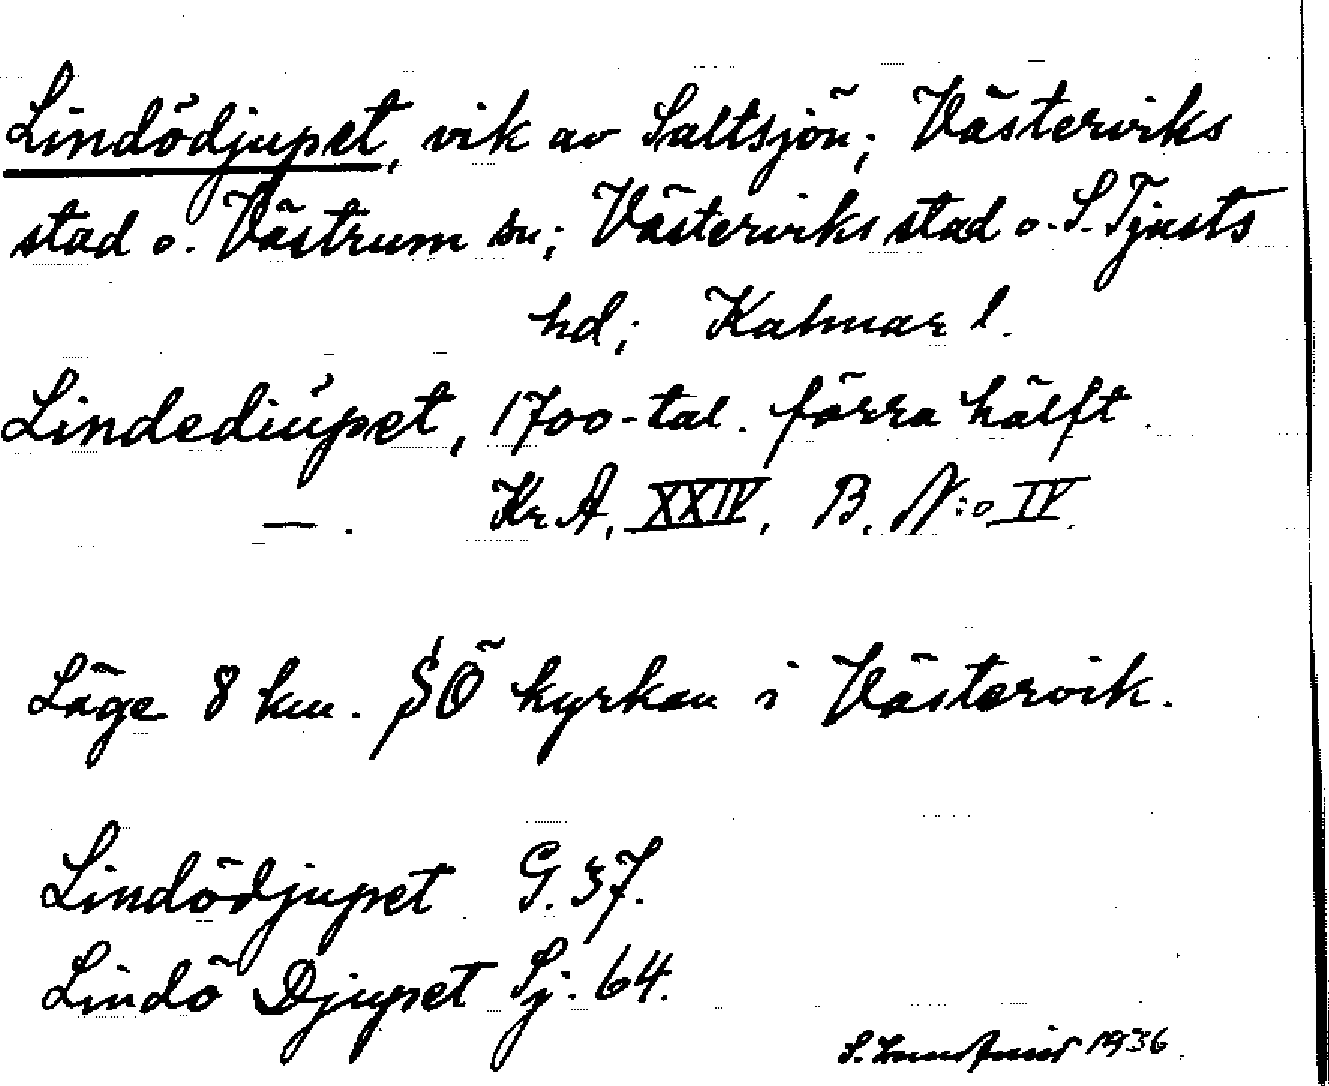 Lindödjupet, vik av Saltsjön; Västerviks
stad o. Västrum sn; Västerviks stad o. S. Tjusts
hd; Kalmar l.
Lindediúpet, 1700-tal. förra hälft.
— . Kr.A, XXIV, B. N:o IV.
Läge 8 km. SÖ kyrkan i Västervik.
Lindödjupet G. 37.
Lindö Djupet Sj. 64.
S. 1936.